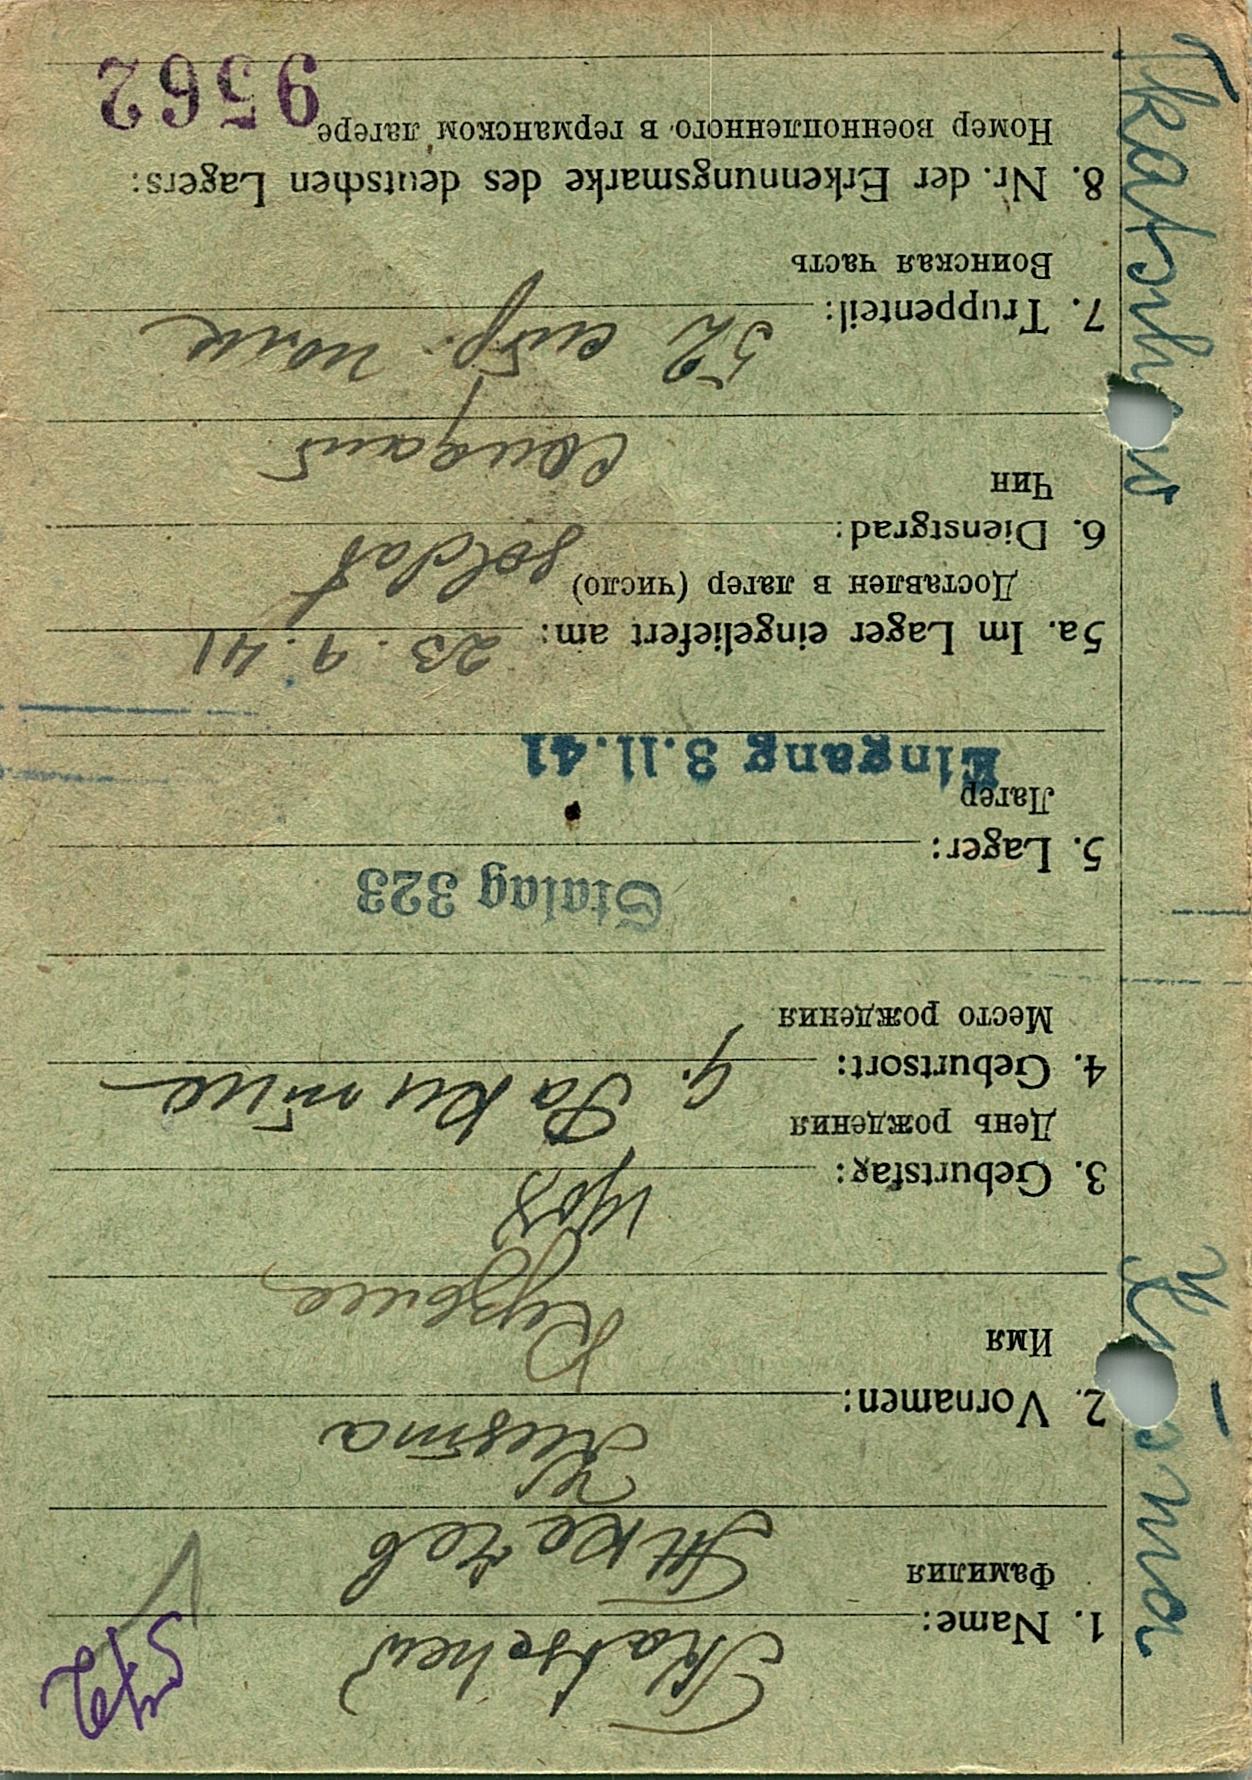 Tkatschew
1. Name:
Фамилия
Ткачев
2. Vornamen:
Kusma
Имя
Кузьма
3. Geburtstag: 1908
День рождения
4. Geburtsort:
Место рождения
Stalag 323
5. Lager:
Лагер
Eingang 3.11.41
5a. Im Lager eingeliefert am: 23.9.41
Доставлен в лагер (число)
6. Dienstgrad: Soldat
Чин
солдат
7. Truppenteil: 52
Воинская часть
8. Nr. der Erkennungsmarke des deutschen Lagers:
Номер военнопленного в германском лагере 9562
Kusma
Tkatschew